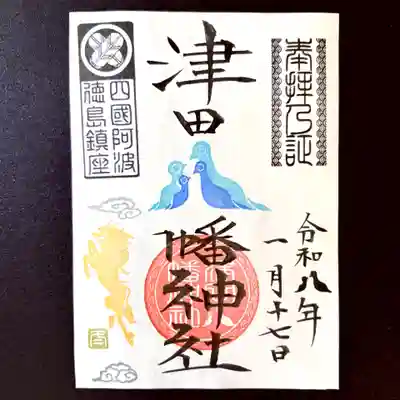 奉拝乃証
令和八年
一月二十七日
津田
幡神社
四國阿波
徳島鎮座